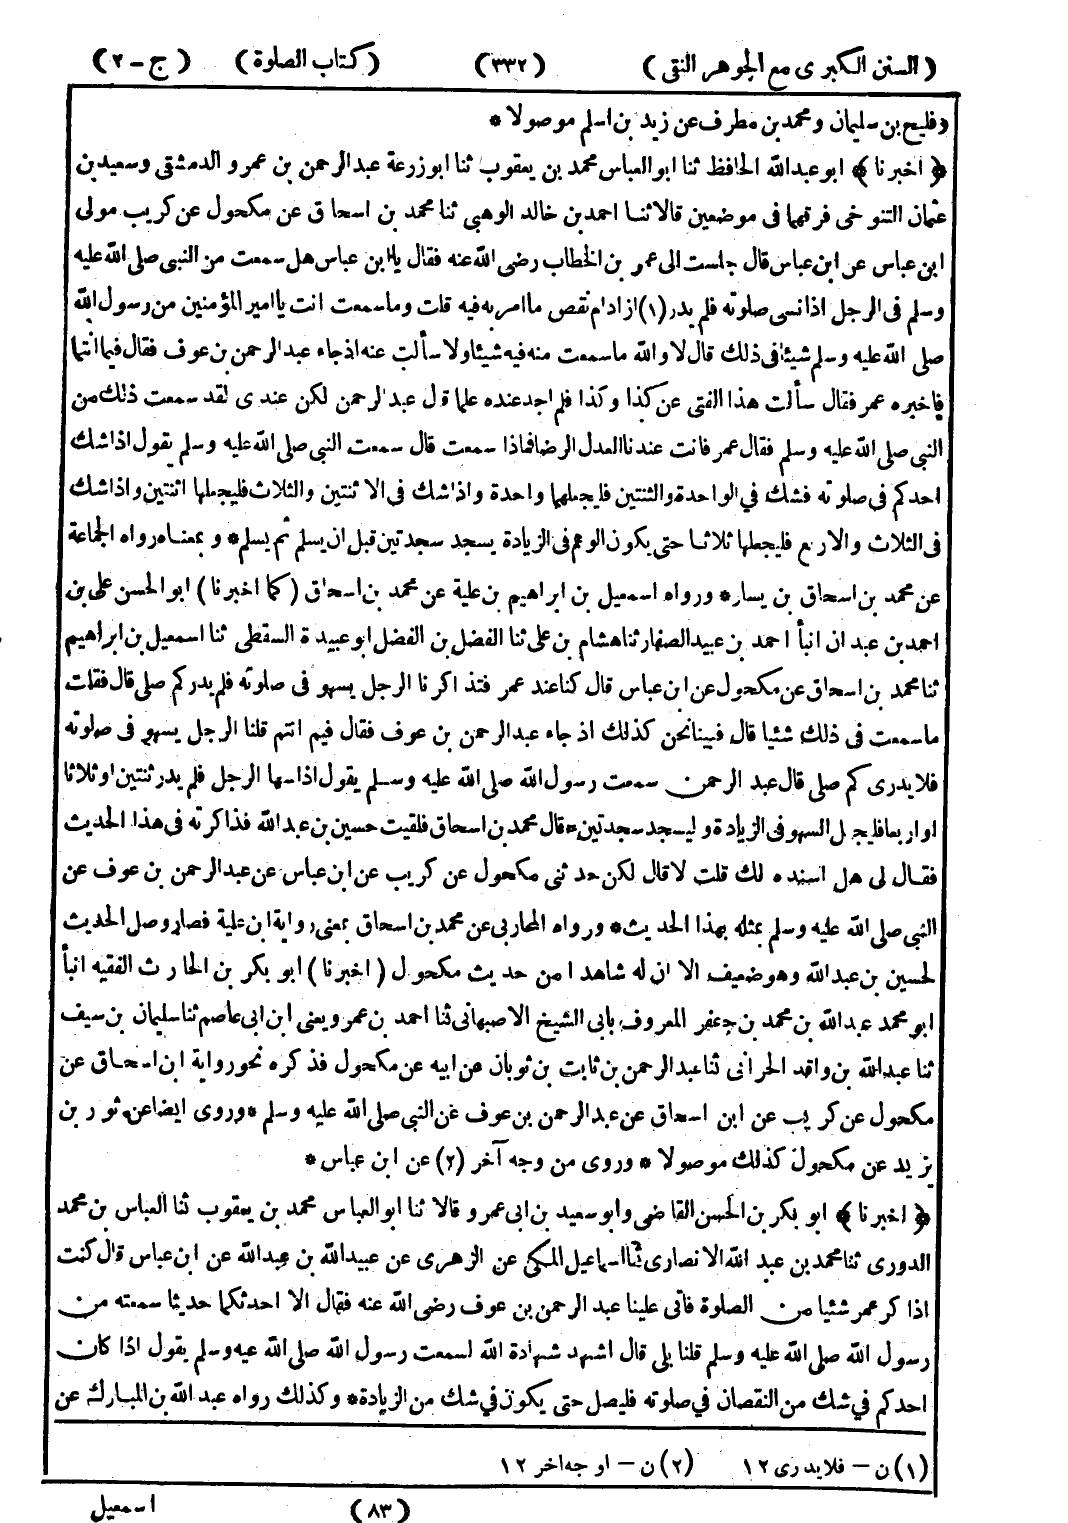 ( السنن الكبرى مع الجوهر النقى ) (٣٣٢) ( كتاب الصلوة ) ( ج - ٢ )
وفليح بن سليمان ومحمد بن مطرف عن زيد بن اسلم موصولا *
﴿ اخبرنا ﴾ ابوعبدالله الحافظ ثنا ابوالعباس محمد بن يعقوب ثنا ابوزرعة عبدالرحمن بن عمرو الدمشقى وسعيد بن
عثمان التنوخى فرقهما فى موضعين قالا ثنا احمد بن خالد الوهبى ثنا محمد بن اسحاق عن مكحول عن كريب مولى
ابن عباس عن ابن عباس قال جلست الى عمر بن الخطاب رضى الله عنه فقال يا ابن عباس هل سمعت من النبى صلى الله عليه
وسلم فى الرجل اذا نسى صلوته فلم يدر(١) ازاد ام نقص ما امر به فيه قلت وما سمعت انت يا امير المؤمنين من رسول الله
صلى الله عليه وسلم شيئا فى ذلك قال لا والله ما سمعت منه فيه شيئا ولا سألت عنه اذ جاء عبدالرحمن بن عوف فقال فيما انتما
فاخبره عمر فقال سألت هذا الفتى عن كذا وكذا فلم اجد عنده علما قال عبد الرحمن لكن عندى لقد سمعت ذلك من
النبى صلى الله عليه وسلم فقال عمر فانت عندنا العدل الرضا فماذا سمعت قال سمعت النبى صلى الله عليه وسلم يقول اذا شك
احدكم فى صلوته فشك فى الواحدة والثنتين فليجعلهما واحدة واذا شك فى الاثنتين والثلاث فليجعلها اثنتين واذا شك
فى الثلاث والاربع فليجعلها ثلاثا حتى يكون الوهم فى الزيادة يسجد سجدتين قبل ان يسلم ثم يسلم* وبمعناه رواه الجماعة
عن محمد بن اسحاق بن يسار* ورواه اسمعيل بن ابراهيم بن علية عن محمد بن اسحاق (كما اخبرنا) ابوالحسن على بن
احمد بن عبدان انبأ احمد بن عبيد الصفار ثنا هشام بن على ثنا الفضل بن الفضل ابوعبيدة السقطى ثنا اسمعيل بن ابراهيم
ثنا محمد بن اسحاق عن مكحول عن ابن عباس قال كنا عند عمر فتذاكرنا الرجل يسهو فى صلوته فلم يدركم صلى قال فقلت
ما سمعت فى ذلك شئيا قال فبينا نحن كذلك اذ جاء عبدالرحمن بن عوف فقال فيم انتم قلنا الرجل يسهو فى صلوته
فلا يدرى كم صلى قال عبد الرحمن سمعت رسول الله صلى الله عليه وسلم يقول اذا سها الرجل فلم يدر ثنتين او ثلاثا
او اربعا فليجعل السهو فى الزيادة وليسجد سجدتين* قال محمد بن اسحاق فلقيت حسين بن عبدالله فذاكرته فى هذا الحديث
فقال لى هل اسنده لك قلت لا قال لكن حدثنى مكحول عن كريب عن ابن عباس عن عبدالرحمن بن عوف عن
النبى صلى الله عليه وسلم بمثله بهذا الحديث* ورواه المحاربى عن محمد بن اسحاق بمعنى رواية ابن علية فصار وصل الحديث
لحسين بن عبدالله وهو ضعيف الا ان له شاهدا من حديث مكحول (اخبرنا) ابوبكر بن الحارث الفقيه انبأ
ابو محمد عبدالله بن محمد بن جعفر المعروف بابى الشيخ الاصبهانى ثنا احمد بن عمرو يعنى ابن ابى عاصم ثنا سليمان بن سيف
ثنا عبدالله بن واقد الحرانى ثنا عبد الرحمن بن ثابت بن ثوبان عن ابيه عن مكحول فذكره نحو رواية ابن اسحاق عن
مكحول عن كريب عن ابن اسحاق عن عبدالرحمن بن عوف عن النبى صلى الله عليه وسلم *وروى ايضا عن ثور بن
يزيد عن مكحول كذلك موصولا * وروى من وجه آخر (٢) عن ابن عباس *
﴿ اخبرنا ﴾ ابو بكر بن الحسن القاضى وابو سعيد بن ابى عمرو قالا ثنا ابوالعباس محمد بن يعقوب ثنا العباس بن محمد
الدورى ثنا محمد بن عبد الله الانصارى ثنا اسماعيل المكى عن الزهرى عن عبيدالله بن عبدالله عن ابن عباس قال كنت
اذاكر عمر شئيا من الصلوة فاتى علينا عبد الرحمن بن عوف رضى الله عنه فقال الا احدثكما حديثا سمعته من
رسول الله صلى الله عليه وسلم قلنا بلى قال اشهد شهادة الله لسمعت رسول الله صلى الله عيه وسلم يقول اذا كان
احدكم فى شك من النقصان فى صلوته فليصل حتى يكون فى شك من الزيادة* وكذلك رواه عبد الله بن المبارك عن
(١) ن — فلا يدرى ١٢ (٢) ن — او جه اخر ١٢
(٨٣) اسمعيل